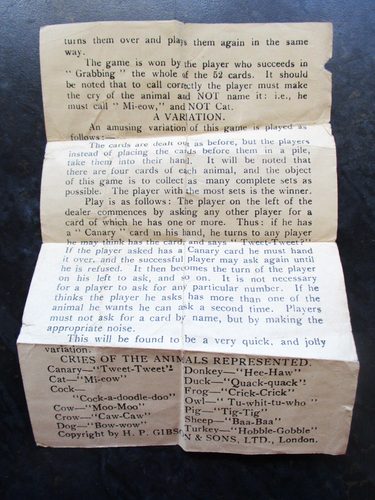 turns them over and plays them again in the same
way.
The game is won by the player who succeeds in
" Grabbing " the whole of the 52 cards. It should
be noted that to call correctly the player must make
the cry of the animal and NOT name it: i.e., he
must call " Mi-eow," and NOT Cat.
A VARIATION.
An amusing variation of this game is played as
follows:—
The cards are dealt out as before, but the players
instead of placing the cards before them in a pile,
take them into their hand. It will be noted that
there are four cards of each animal, and the object
of this game is to collect as many complete sets as
possible. The player with the most sets is the winner.
Play is as follows: The player on the left of the
dealer commences by asking any other player for a
card of which he has one or more. Thus: if he has
a " Canary " card in his hand, he turns to any player
he may think has the card, and says " Tweet-Tweet?"
If the player asked has a Canary card he must hand
it over, and the successful player may ask again until
he is refused. It then becomes the turn of the player
on his left to ask, and so on. It is not necessary
for a player to ask for any particular number. If he
thinks the player he asks has more than one of the
animal he wants he can ask a second time. Players
must not ask for a card by name, but by making the
appropriate noise.
This will be found to be a very quick, and jolly
variation.
CRIES OF THE ANIMALS REPRESENTED.
Canary—"Tweet-Tweet"
Cat—"Mi-eow"
Cock—
"Cock-a-doodle-doo"
Cow—"Moo-Moo"
Crow—"Caw-Caw"
Dog—"Bow-wow"
Donkey—"Hee-Haw"
Duck—"Quack-quack"
Frog—"Crick-Crick"
Owl—" Tu-whit-tu-who "
Pig—"Tig-Tig"
Sheep—"Baa-Baa"
Turkey—"Hobble-Gobble"
Copyright by H. P. GIBSON & SONS, LTD., London.